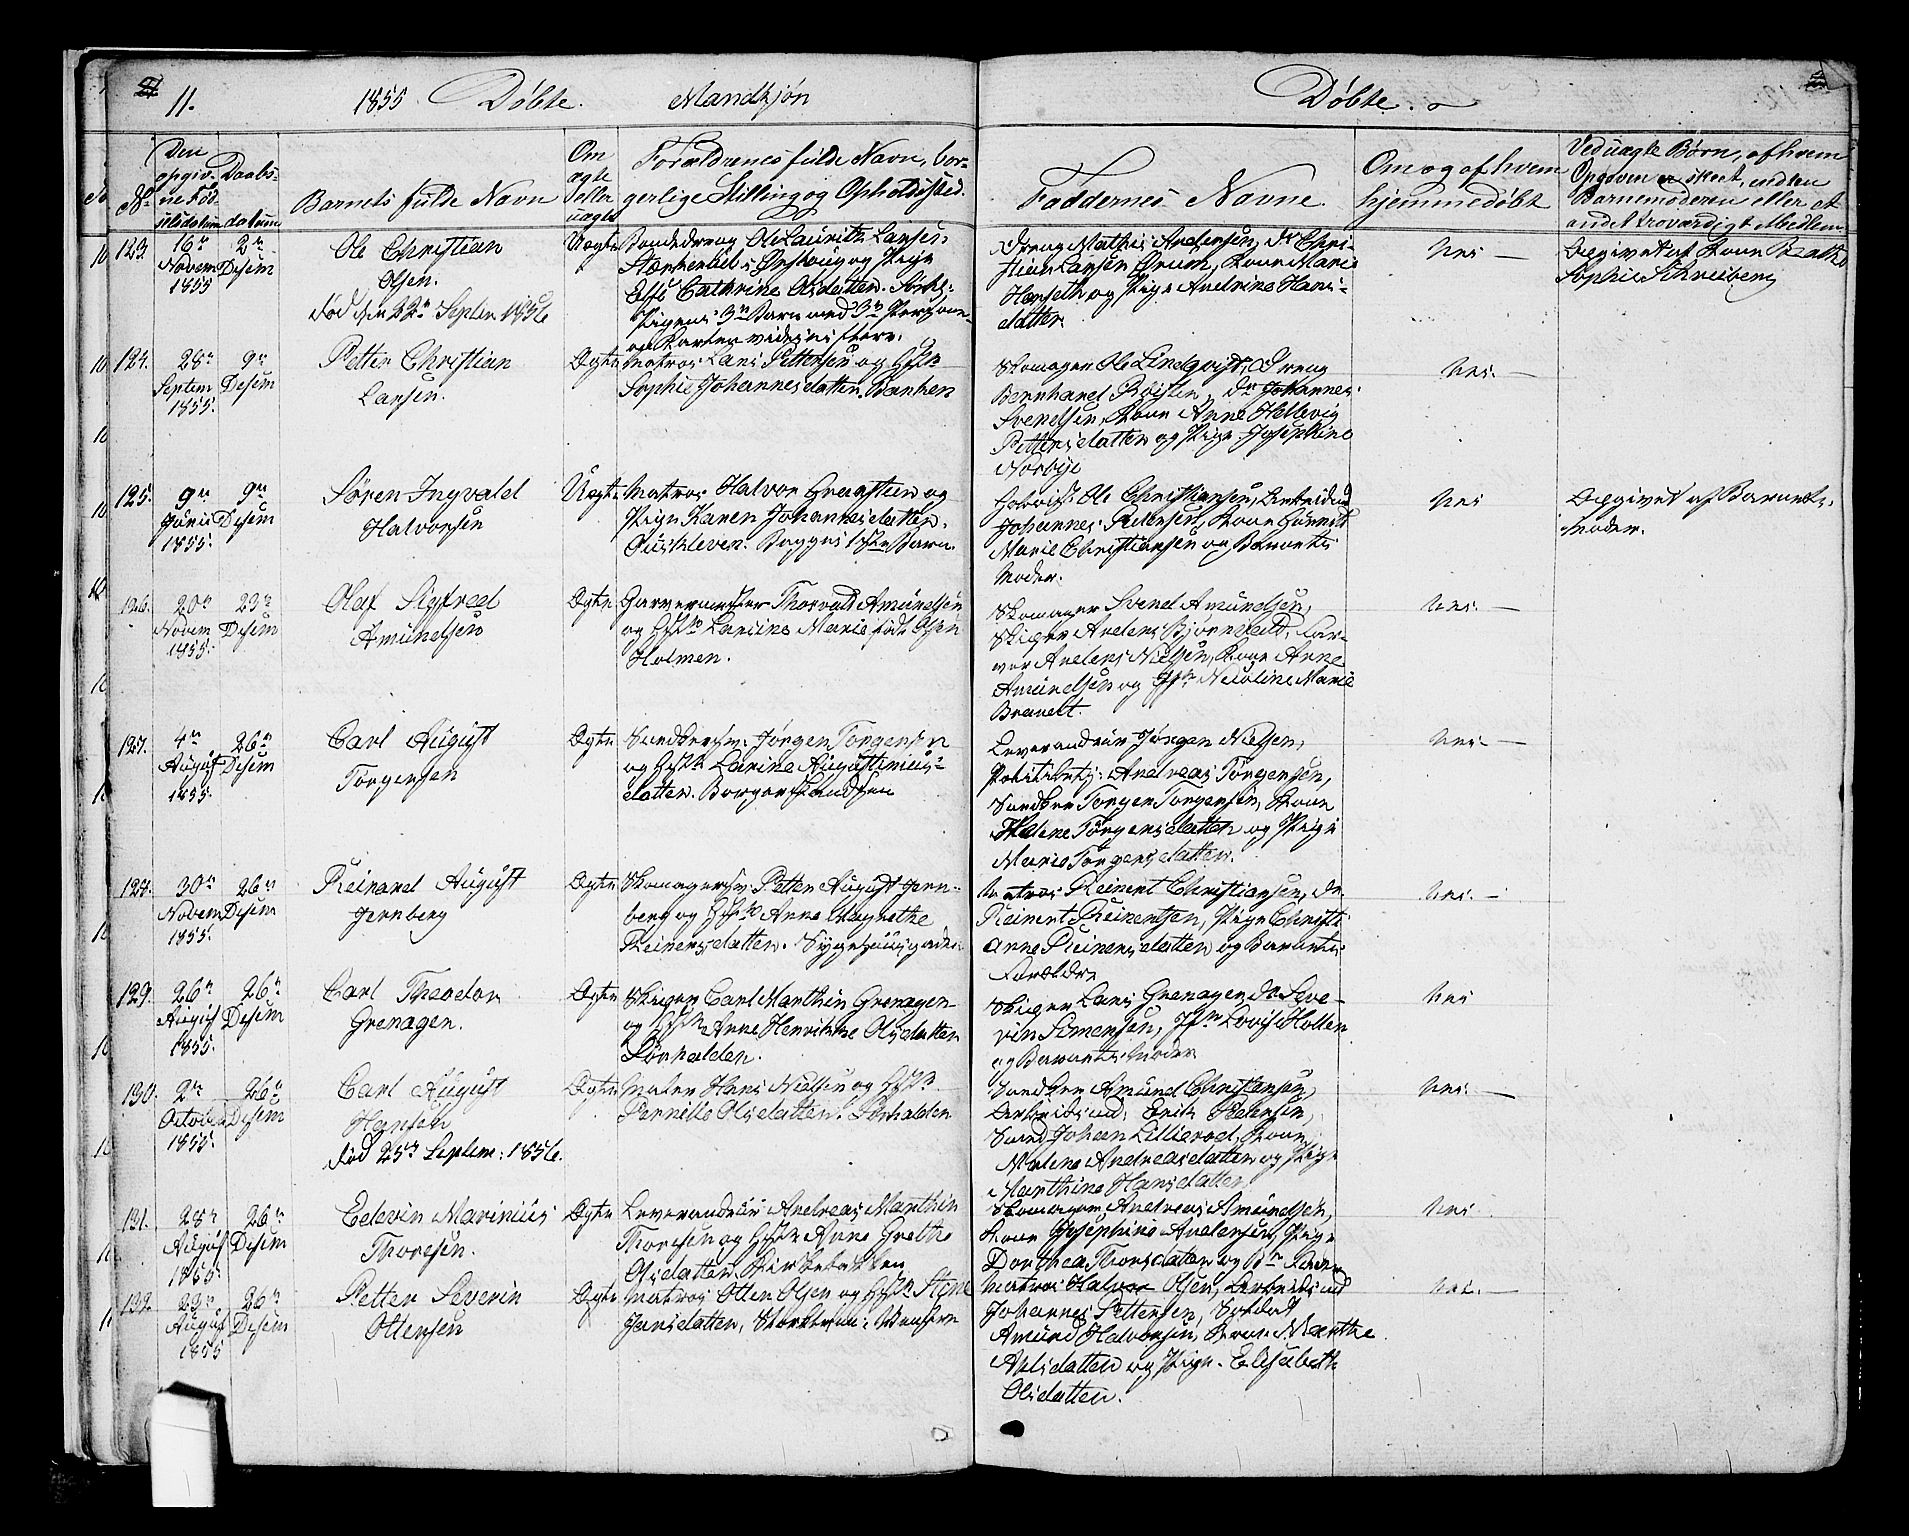 11. 1855 Døbte. Mandkjøn
Døbte.
No
Den opgivne Fødselsdatum
Daabsdatum
Barnets fulde Navn
Om ægte eller uægte
Forældrenes fulde Navn, borgerlige Stilling og Opholdssted.
Faddernes Navne.
Om og af hvem hjemmedøbt
Ved uægte Børn, af hvem Opgiven er skeet, enten Barnemoderen eller et andet troværdigt Medlem
123. 16n Novem 1855 2n Desem
Ole Christian
Olsen.
død den 22n Septem 1856
Uægte
Bondedreng Ole Laurits Larsen
og Pige
Cathrine Olsdatter.
Pigens 3n Barn med 3n Person
Dreng Mathis Andersen, do Christian Larsen Ørum, Kone Marie
og Pige Andrine Hansdatter
Nei —
Opgivet af Kone Beathe
Sophie Schreiberg
124. 28n Septem 1855. 9n Desem
Petter Christian
Larsen.
Ægte
Matros Lars Pettersen og Hstr
Sophie Johannesdatter. Banken
Skomager Ole Lindqvist, Dreng
Bernhard do Johannes
Svendsen, Kone Anne Hellevig
Pettersdatter og Pige Josephine
Norbye
Nei. —
125. 9n Junii 1855. 9n Desem
Søren Ingvald
Halvorsen
Uægte
Matros Halvor Gregersen og
Pige Karen Johannesdatter.
Begges 1ste Barn.
Ole Christiansen, Arbeidsmd
Johannes Pedersen, Kone Gunnild
Marie Christiansen og Barnets
Moder.
Nei
Opgivet af Barnets
Moder.
126. 20n Novem 1855. 23n Desem
Olaf Sigfred
Amundsen
Ægte
Garvermester Thorvald Amundsen
og Hstr Laurine Marie født Olsen
Holmen.
Skomager Svend Amundsen,
Skipper Anders Bjørnstedt, Farver Anders Nielsen, Kone Anne
Amundsen og Jfr Nicoline Marie
Brandt.
Nei. —
127. 4n August 1855. 26n Desem
Carl August
Torgersen
Ægte
Snedkersv. Jørgen Torgersen
og Hstr Larine Augustinusdatter. Borgerskandsen
Leverandeur Jørgen Nielsen,
Politibetj: Andreas Torgersen,
Snedker Torger Torgersen, Kone
Helene Torgersdatter og Pige
Marie Torgersdatter.
Nei. —
128. 30n Novem 1855. 26n Desem
Reinard August
Jernberg
Ægte
Skomagersv. Petter August Jernberg og Hstr Anne Magrethe
Reinersdatter. Sygehuusgaden
Matros Reinert Christiansen, do
Reinert Reinertsen, Pige Christianne Reinersdatter og Barnets
Forældre
Nei. —
129. 26n August 1855. 26n Desem
Carl Theodor
Grenager.
Ægte
Skipper Carl Marthin Grenager
og Hstr Anne Henrikke Olsdatter
Sørhalden.
Skipper Lars Grenager, do Severin Simensen, Jfr Lovise Holter
og Barnets Moder
Nei
130. 2n October 1855. 26n Desem
Carl August
Hansen
død 25n Septem: 1856.
Ægte
Maler Hans Nielsen og Hstr
Pernille Olsdatter. Sørhalden
Snedker Amund Christensen,
Arbeidsmd: Erik Pedersen,
Snedk Johan Lillerod, Kone
Malene Andreasdatter og Pige
Marthine Hansdatter
Nei. —
131. 28n August 1855. 26n Desem
Edevin Marinius
Thoresen.
Ægte
Leverandeur Andreas Marthin
Thoresen og Hstr Anne Grethe
Olsdatter.
Skomager Andreas Amundsen,
Kone Josephine Andersen, Pige
Dorthea Thorsdatter og Bn Fader
Nei
132. 23n August 1855 26n Desem
Petter Severin
Ottersen
Ægte
Matros Otter Olsen og Hstr Signe
Jansdatter,
Matros Halvor Olsen, Arbeidsmd
Johannes Pettersen, Soldat
Amund Halvorsen, Kone Marthe
Axelsdatter og Pige Elisabeth
Olsdatter.
Nei. —